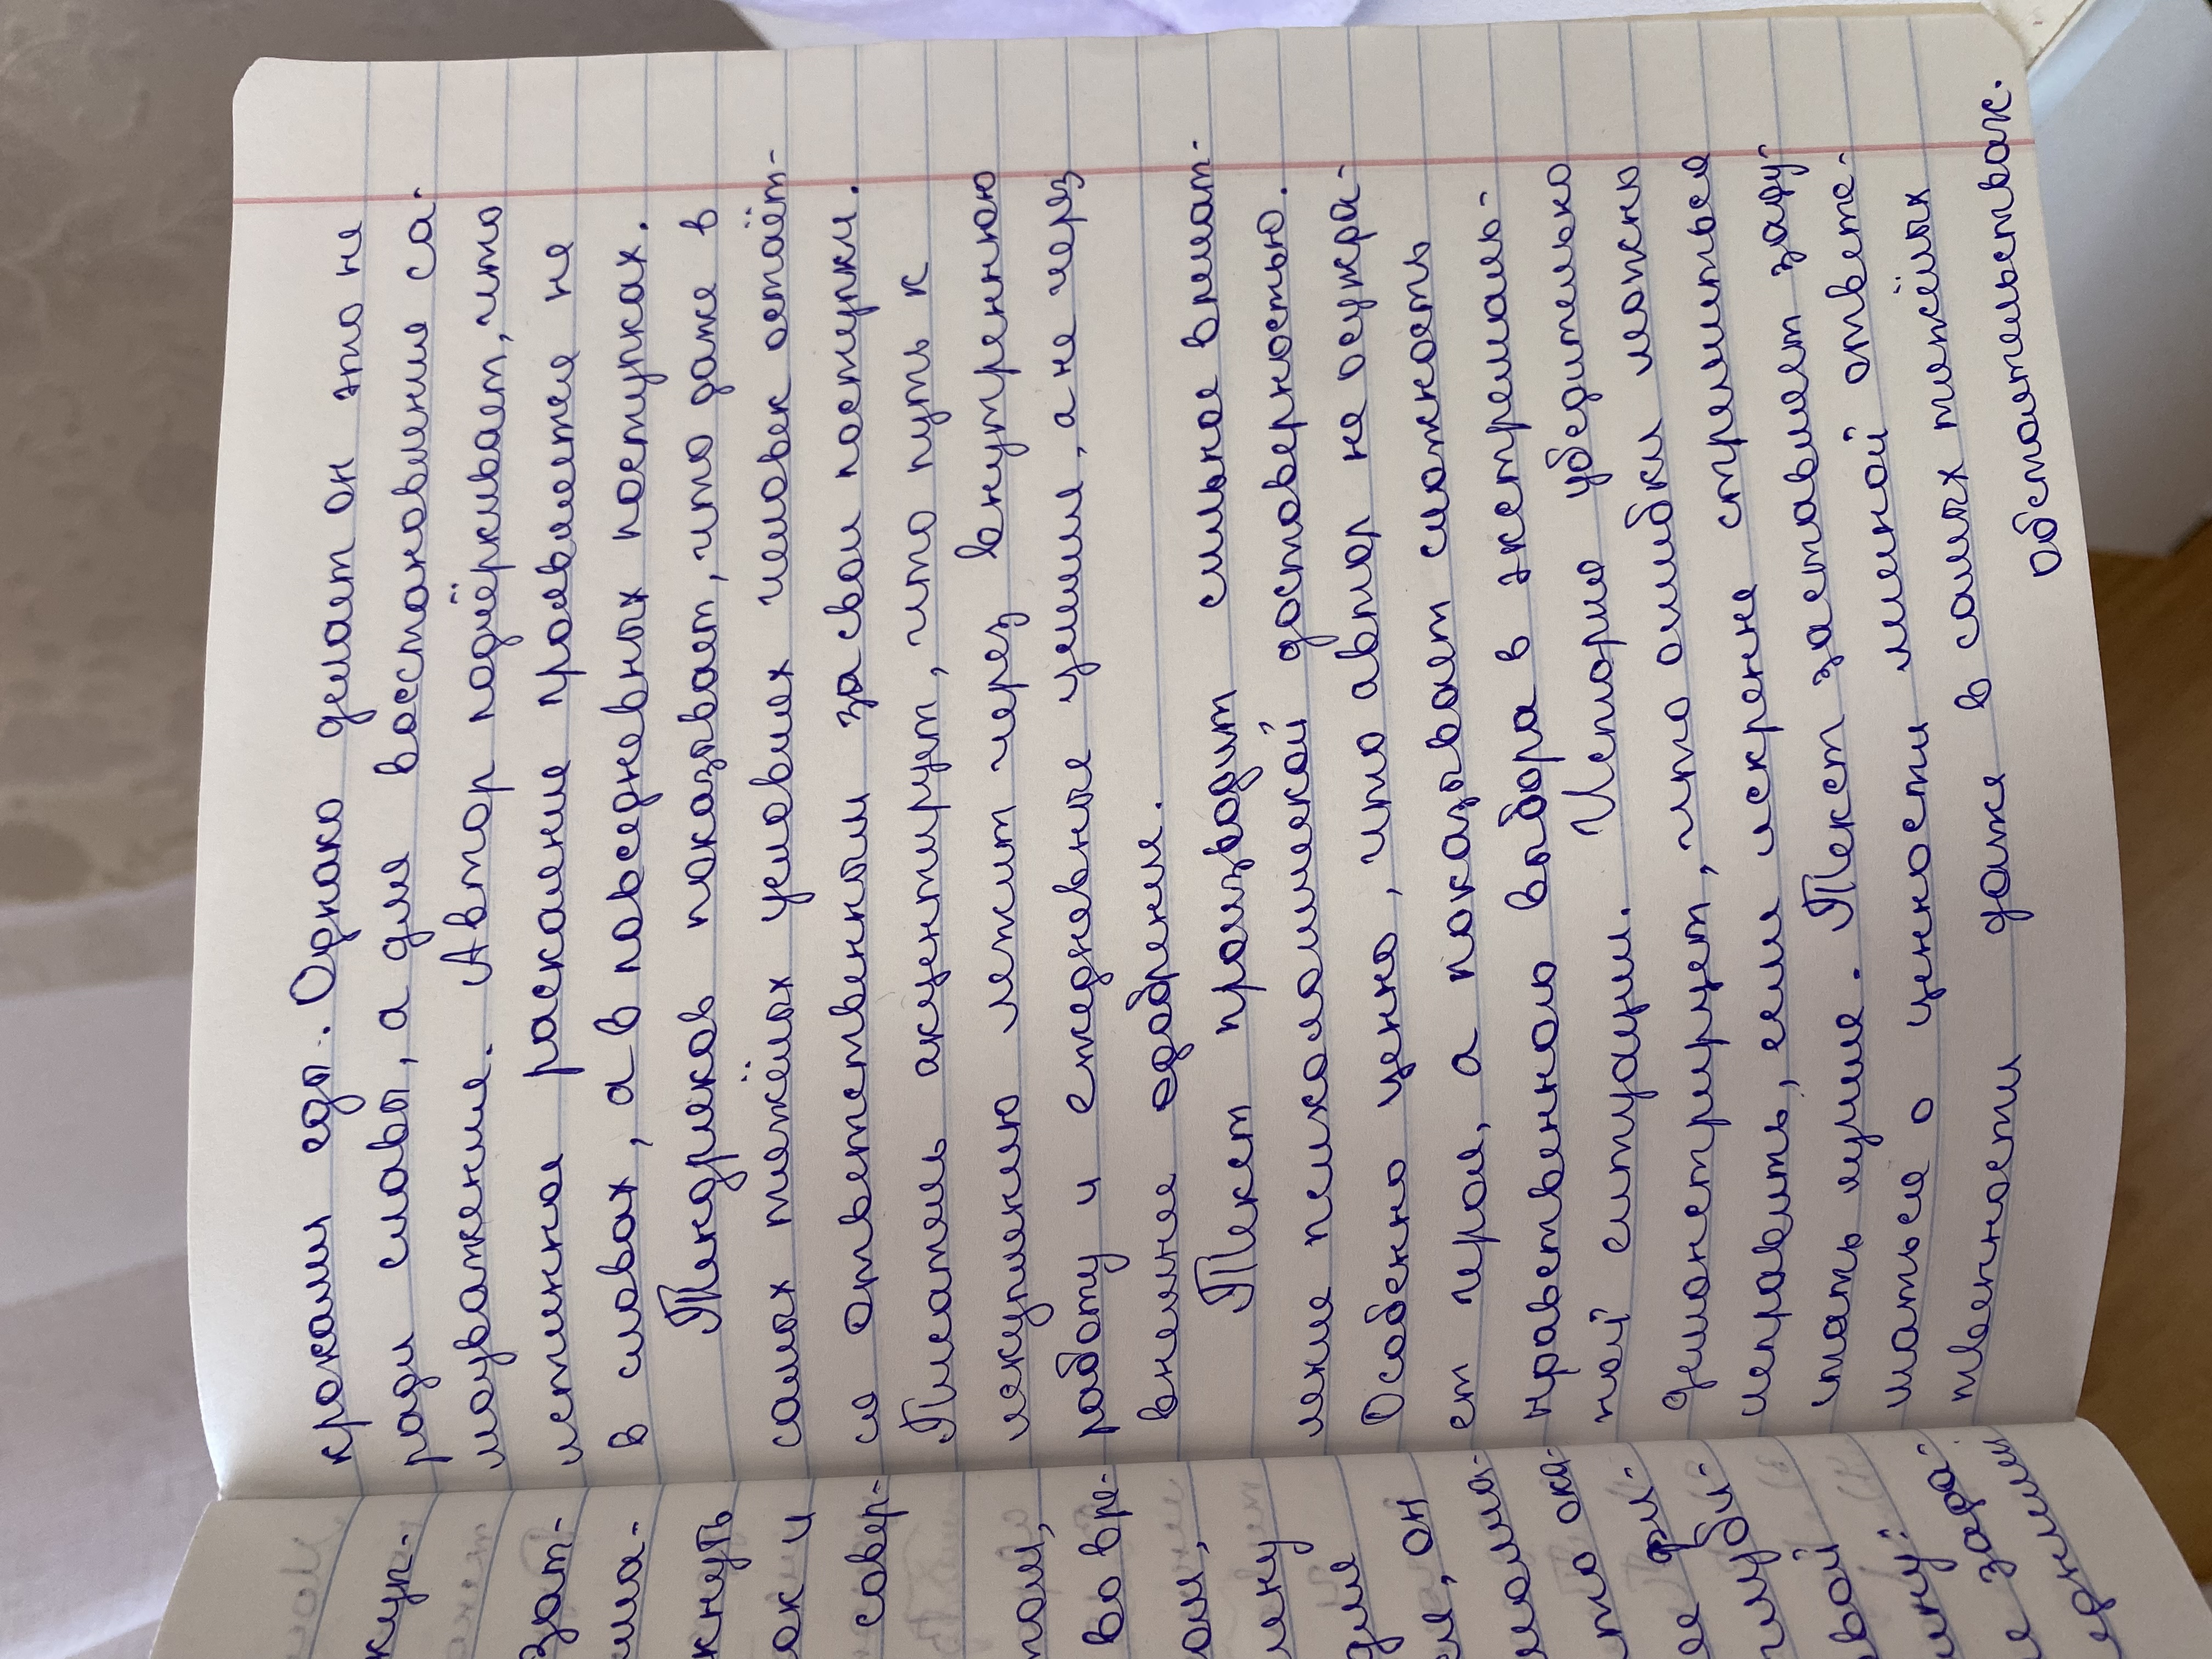 кроками еды. Однако делает он это не
ради славы, а для восстановления са-
моуважения. Автор подчёркивает, что
истинное раскаяние проявляется не
в словах, а в повседневных поступках.
Тендряков показывает, что даже в
самых тяжёлых условиях человек остаёт-
ся ответственным за свои поступки.
Писатель акцентирует, что путь к
искуплению лежит через внутреннюю
работу и ежедневные усилия, а не через
внешнее одобрение.
Текст производит сильное впечат-
ление психологической достоверностью.
Особенно ценно, что автор не осужда-
ет героя, а показывает сложность
нравственного выбора в экстремаль-
ной ситуации. История убедительно
демонстрирует, что ошибки можно
исправить, если искренне стремиться
стать лучше. Текст заставляет заду-
маться о ценности личной ответс-
твенности даже в самых тяжёлых
обстоятельствах.
куп-
зат-
кнуть
ок и
совер-
том,
во вре-
он